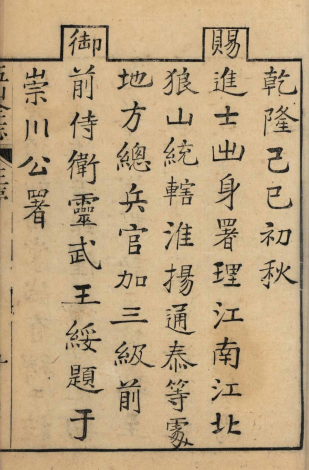 乾隆己巳初秋
賜進士出身署理江南江北
狼山統轄淮揚通泰等處
地方總兵官加三級前
御前侍衛靈武王綏題于
崇川公署